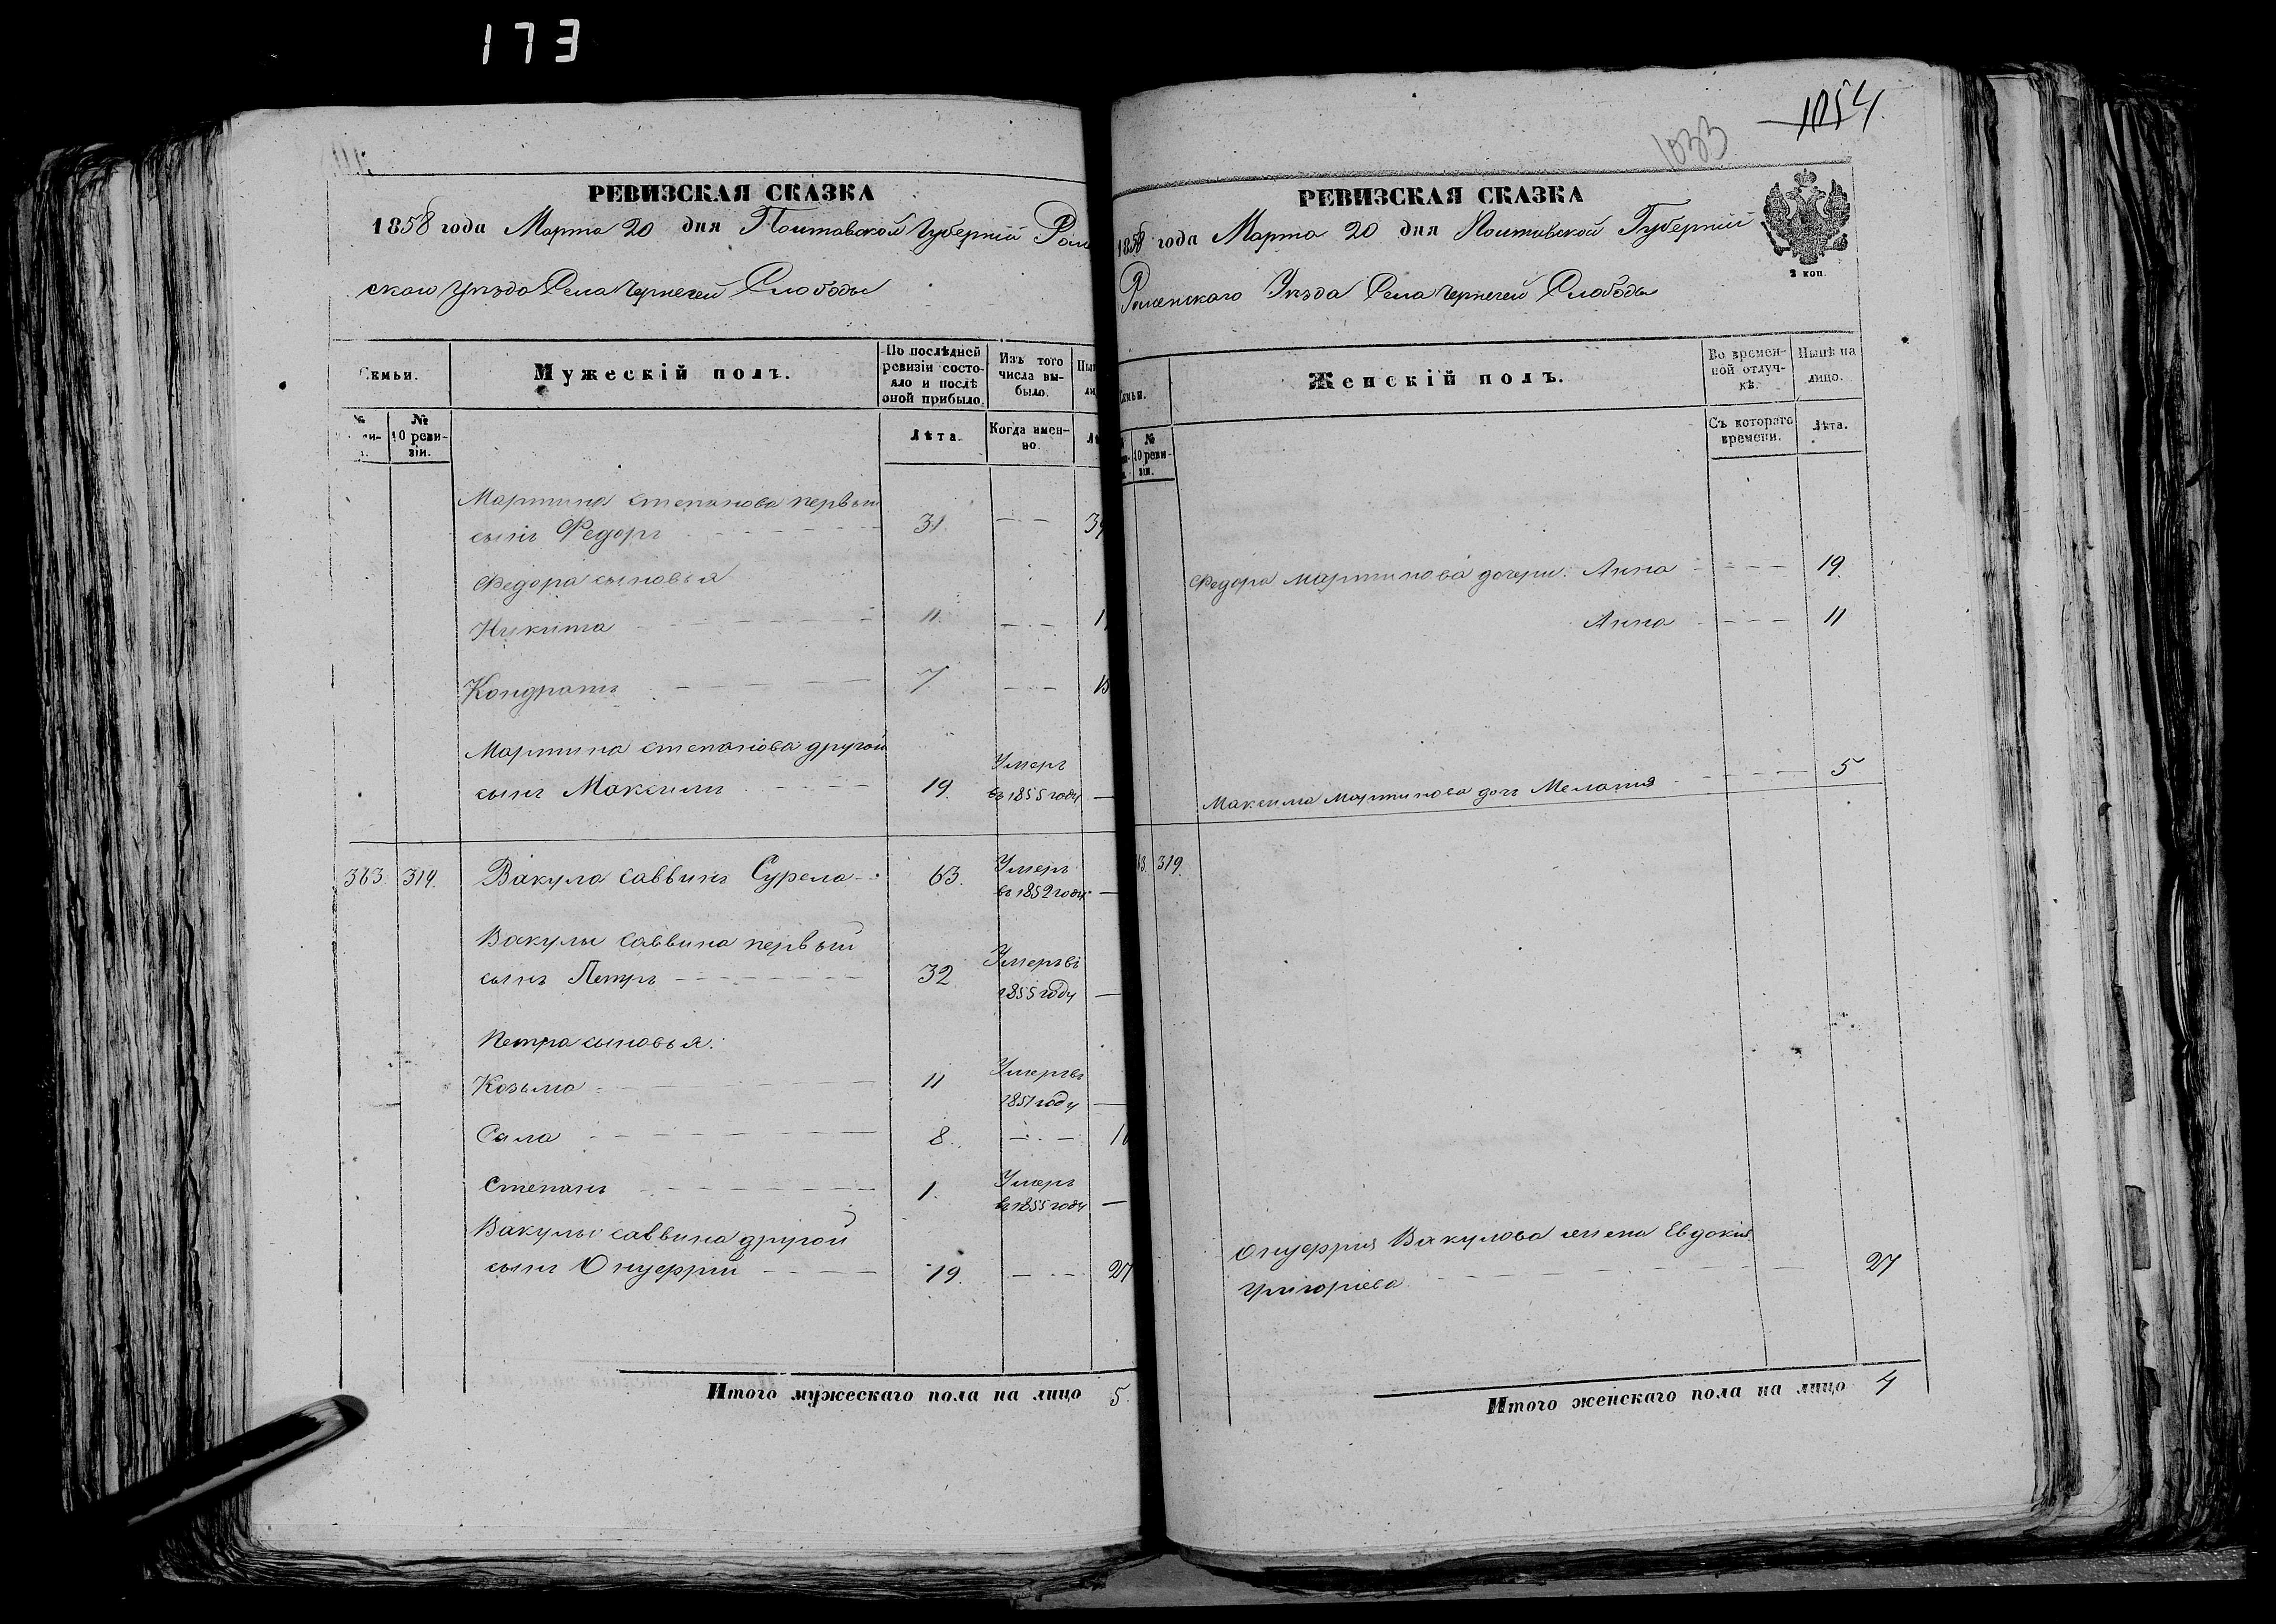 173
РЕВИЗСКАЯ СКАЗКА
1858 года Марта 20 дня Полтавской Губернiи Ром
скаго Уѣзда Села Чернечей Слободы
Семьи.
Мужескiй полъ.
По послѣдней
ревизiи состо-
яло и послѣ
оной прибыло.
Изъ того
числа вы-
было.
№
№
10 реви-
зiи.
Лѣта.
Когда имен-
но.
Мартина Степанова первый
сынъ Федоръ 31
Федора сыновья
Никита 11
Кондратъ 7
Мартина Степанова другой
сынъ Максимъ 19 Умеръ
въ 1855 году
363 319. Вакула Саввинъ Сурела 63. Умеръ
въ 1852 году
Вакулы Саввина первый
сынъ Петръ 32 Умеръ въ
1855 году
Петра сыновья:
Козьма 11 Умеръ въ
1851 году
Сила 8.
Степанъ 1. Умеръ
въ 1855 году
Вакулы Саввина другой
сынъ Онуфрiй 19. 27
Итого мужескаго пола на лицо 5.
1054.
1033
РЕВИЗСКАЯ СКАЗКА
1858 года Марта 20 дня Полтавской Губернiи
2 коп.
Роменскаго Уѣзда Села Чернечей Слободы
Женскiй полъ.
Во времен-
ной отлуч-
кѣ.
Нынѣ на
лицо.
№
10 реви-
зiи.
Съ котораго
времени.
Лѣта.
Федора Мартинова дочери: Анна 19.
Анна 11
Максима Мартинова дочь Меланiя 5
319.
Онуфрiя Вакулова жена Евдокiя
Григорiева 27
Итого женскаго пола на лицо 4